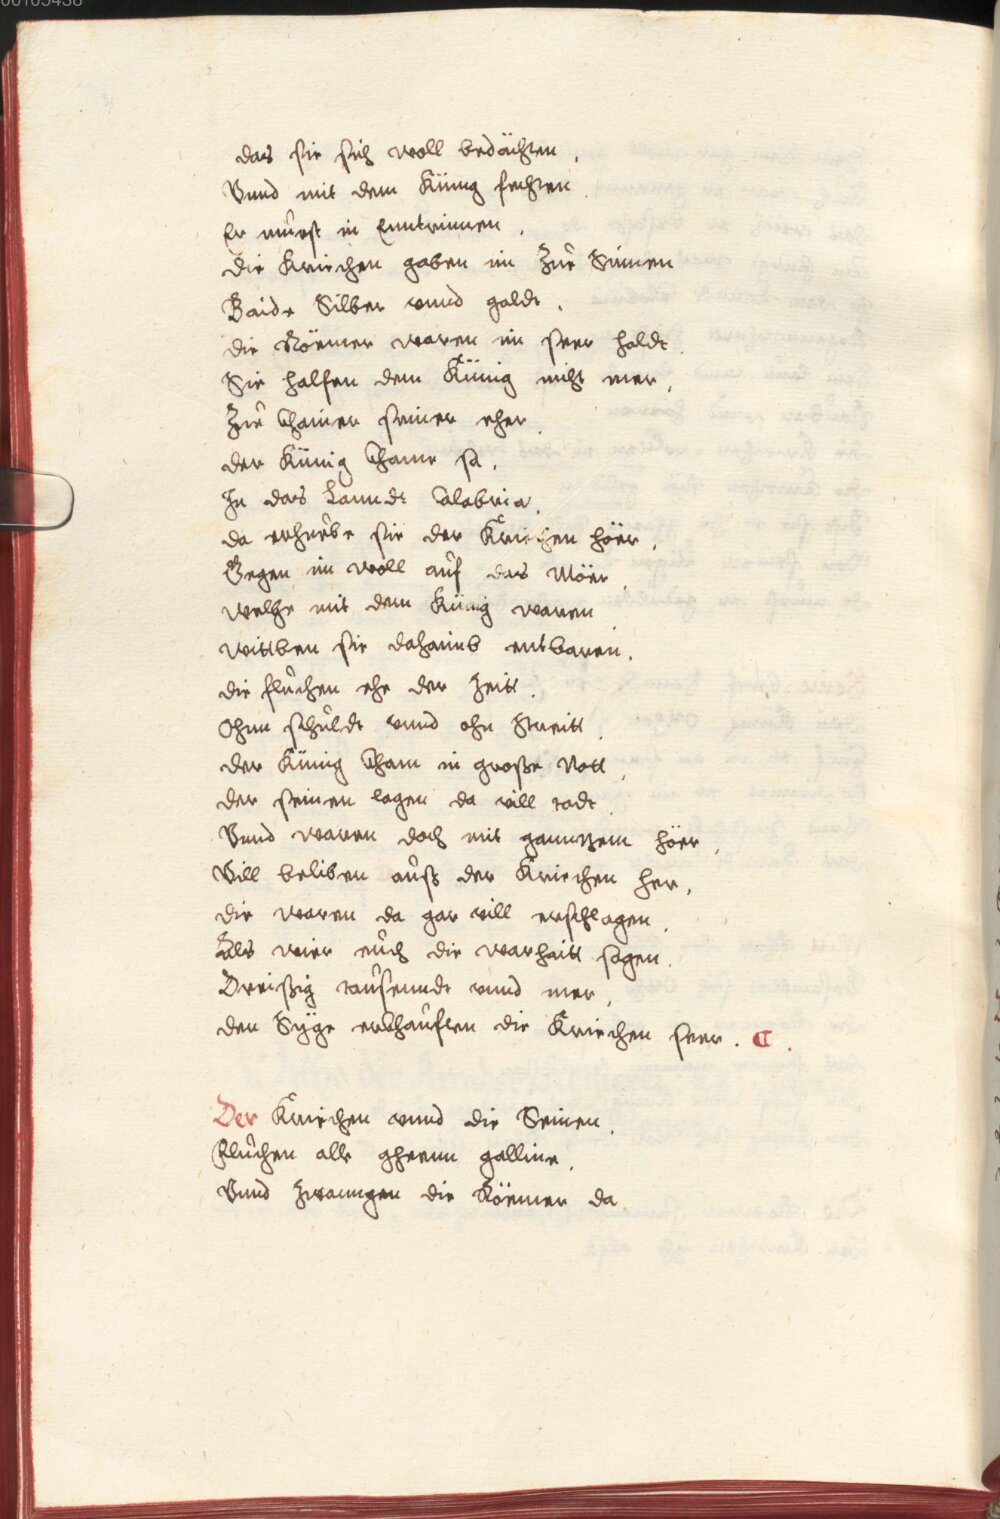 00105438
das sie sich woll bedächten.
Vnnd mit dem Künig fechten
Er müest in Enntrinnen.
die Kriechen gaben im Zue Sinnen
Baide Silber vnnd goldt.
die Römer waren im seer holdt.
Sie halfen dem Künig nicht mer.
Zue khainer seiner eher.
der Künig khame sa.
In das Lanndt Calabria.
da erhuebe sie der Kriechen höer.
Gegen im woll auf das Möer.
welche mit dem Künig waren
wittben sie dahaimb entbaren.
die fluchen ehe der Zeitt.
Ohnn schuldt vnnd ohn Streitt.
der Künig kham in große Nott.
der seinen lagen da vill todt.
Vnnd waren doch mit gannzem höer.
Vill beliben auß der Kriechen her.
die waren da gar vill erschlagen.
Als wier euch die warhaitt sagen.
Dreißig tausenndt vnnd mer.
den Syge erkhauften die Kriechen seer. C.
Der Kriechen vnnd die Seinen.
Fluchen alle gheenn galline.
Vnnd Zwanngen die Römer da